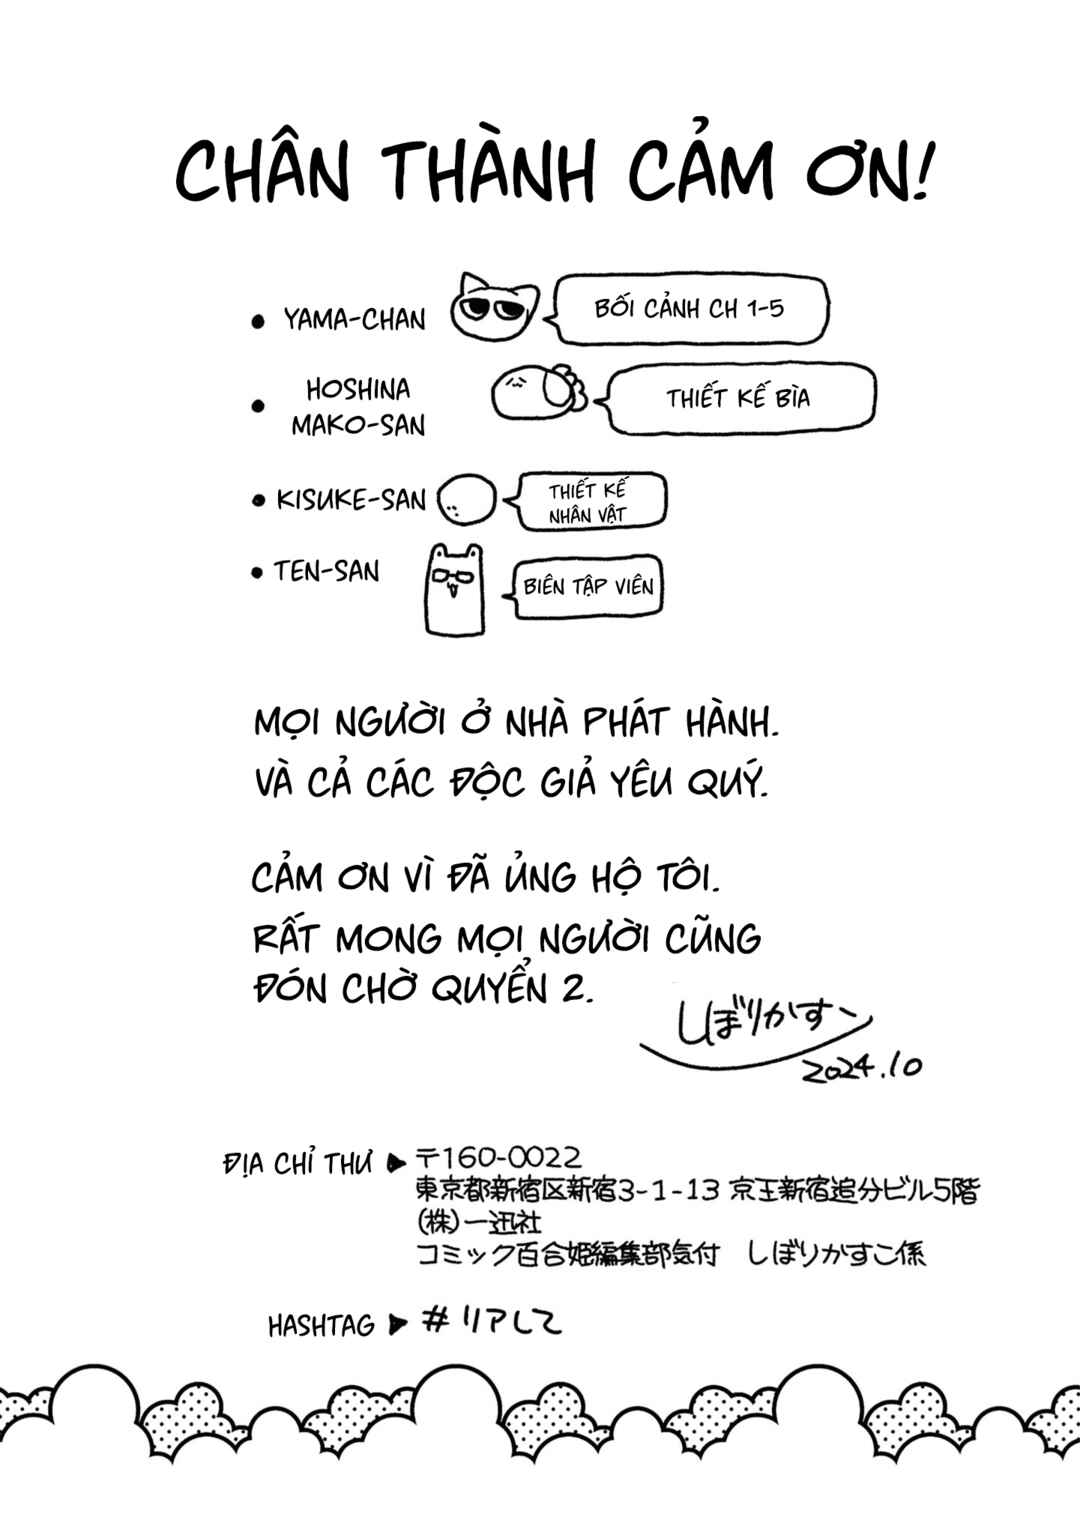 CHÂN THÀNH CẢM ƠN!
• YAMA-CHAN
BỐI CẢNH CH 1-5
• HOSHINA
MAKO-SAN
THIẾT KẾ BÌA
• KISUKE-SAN
THIẾT KẾ
NHÂN VẬT
• TEN-SAN
BIÊN TẬP VIÊN
MỌI NGƯỜI Ở NHÀ PHÁT HÀNH.
VÀ CẢ CÁC ĐỘC GIẢ YÊU QUÝ.
CẢM ƠN VÌ ĐÃ ỦNG HỘ TÔI.
RẤT MONG MỌI NGƯỜI CŨNG
ĐÓN CHỜ QUYỂN 2.
しぼりかすこ
2024.10
ĐỊA CHỈ THƯ ▶ 〒160-0022
東京都新宿区新宿3-1-13 京王新宿追分ビル5階
(株)一迅社
コミック百合姫編集部気付 しぼりかすこ係
HASHTAG ▶ #リアして